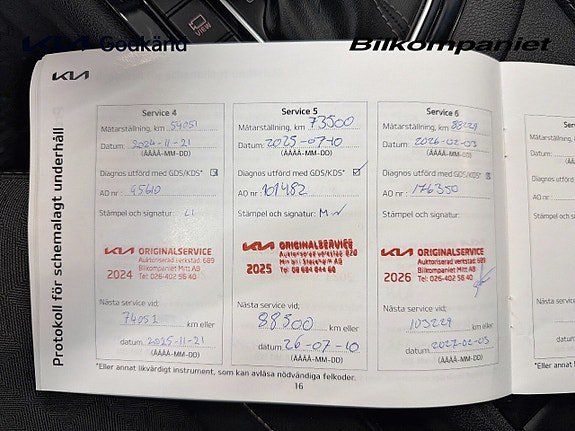 KIA Godkänd
Bilkompaniet
VIEW
KIA
Protokoll för schemalagt underhåll
Service 4
Mätarställning, km 54051
Datum: 2024-11-21
(ÅÅÅÅ-MM-DD)
Diagnos utförd med GDS/KDS*
AO nr: 95610
Stämpel och signatur: LI
KIA ORIGINALSERVICE
Auktoriserad verkstad: 689
Bilkompaniet Mitt AB
Tel: 026-402 56 40
2024
Nästa service vid;
74051 km eller
datum 2025-11-21
(ÅÅÅÅ-MM-DD)
Service 5
Mätarställning, km 73500
Datum: 2025-07-10
(ÅÅÅÅ-MM-DD)
Diagnos utförd med GDS/KDS*
AO nr: 101482
Stämpel och signatur: M
KIA ORIGINALSERVICE
Auktoriserad verkstad
Tel
2025
Nästa service vid;
88500 km eller
datum 26-07-10
(ÅÅÅÅ-MM-DD)
Service 6
Mätarställning, km 88229
Datum: 2026-02-03
(ÅÅÅÅ-MM-DD)
Diagnos utförd med GDS/KDS*
AO nr: 176350
Stämpel och signatur:
KIA ORIGINALSERVICE
Auktoriserad verkstad: 689
Bilkompaniet Mitt AB
Tel: 026-402 56 40
2026
Nästa service vid;
103229 km eller
datum 2027-02-03
(ÅÅÅÅ-MM-DD)
*Eller annat likvärdigt instrument, som kan avläsa nödvändiga felkoder.
16
Mätarställn
Datum:
Diagnos utf
AO nr:
Stämpel och
Nästa servic
*Eller annat